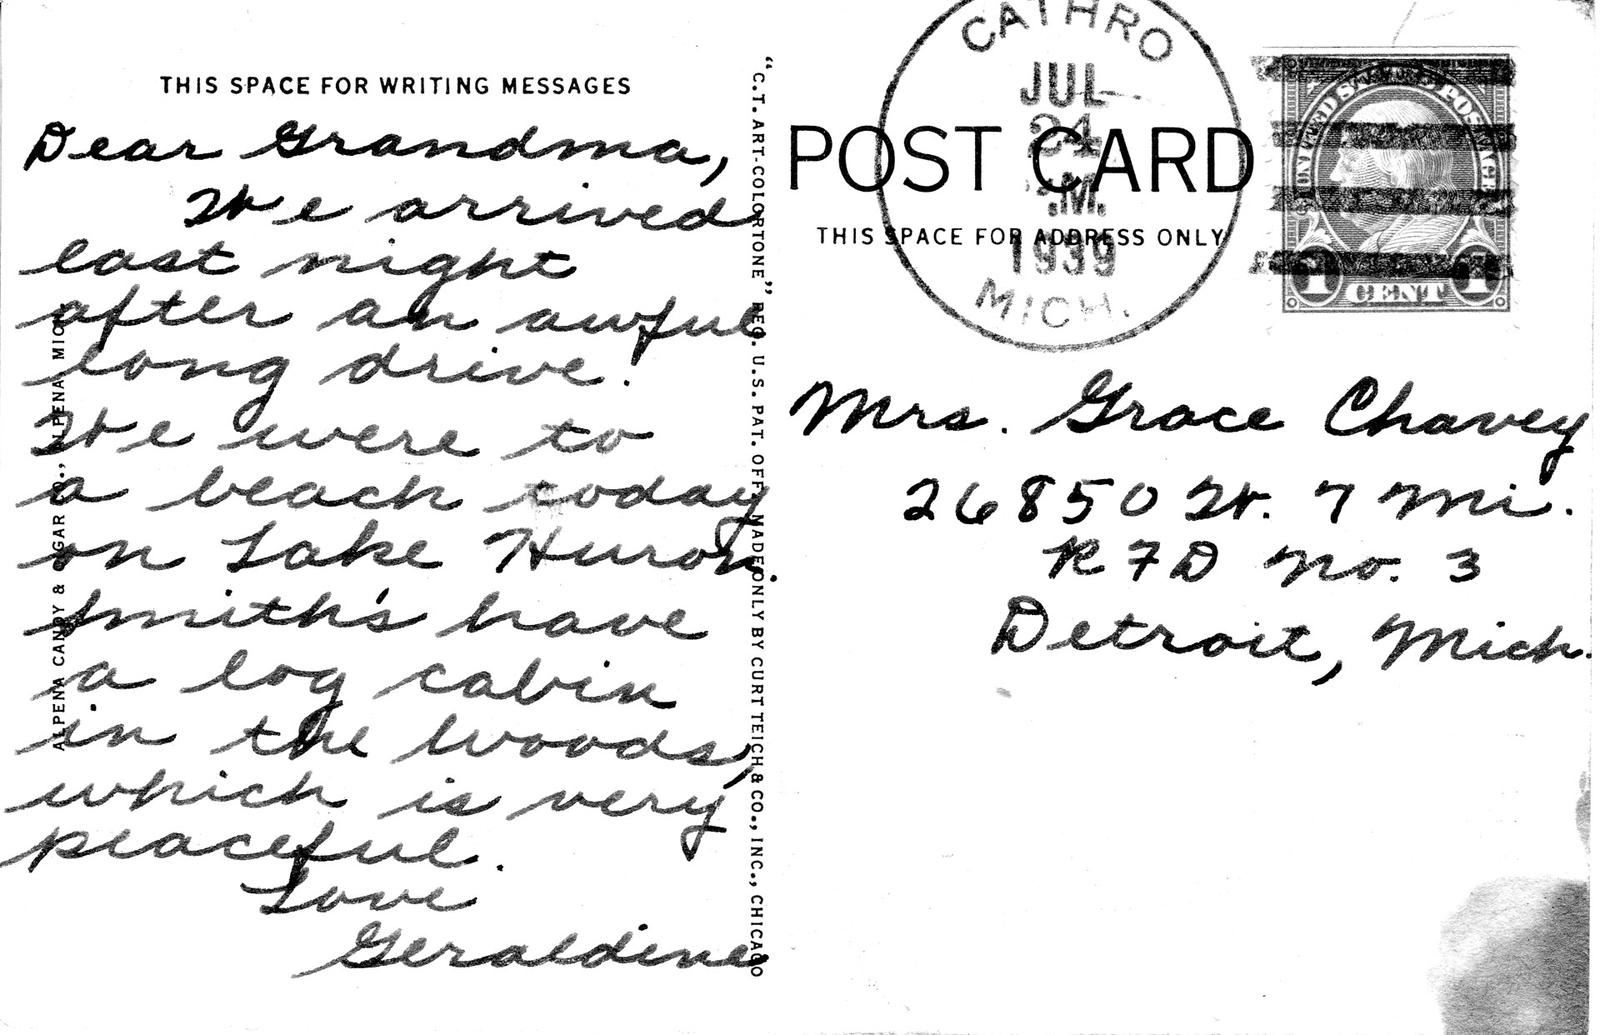 THIS SPACE FOR WRITING MESSAGES
Dear Grandma,
We arrived
last night
after an awful
long drive.
We were to
a beach today
on Lake Huron.
Smith's have
a log cabin
in the woods,
which is very
peaceful.
Love
Geraldine
ALPENA CANDY & CIGAR CO., ALPENA, MICH.
"C. T. ART-COLORTONE" REG. U. S. PAT. OFF. MADE ONLY BY CURT TEICH & CO., INC., CHICAGO
CATHRO
JUL
24
M.
1939
MICH.
POST CARD
THIS SPACE FOR ADDRESS ONLY
UNITED STATES POSTAGE
1 CENT 1
Mrs. Grace Chavey
26850 W. 7 Mi.
R F D No. 3
Detroit, Mich.